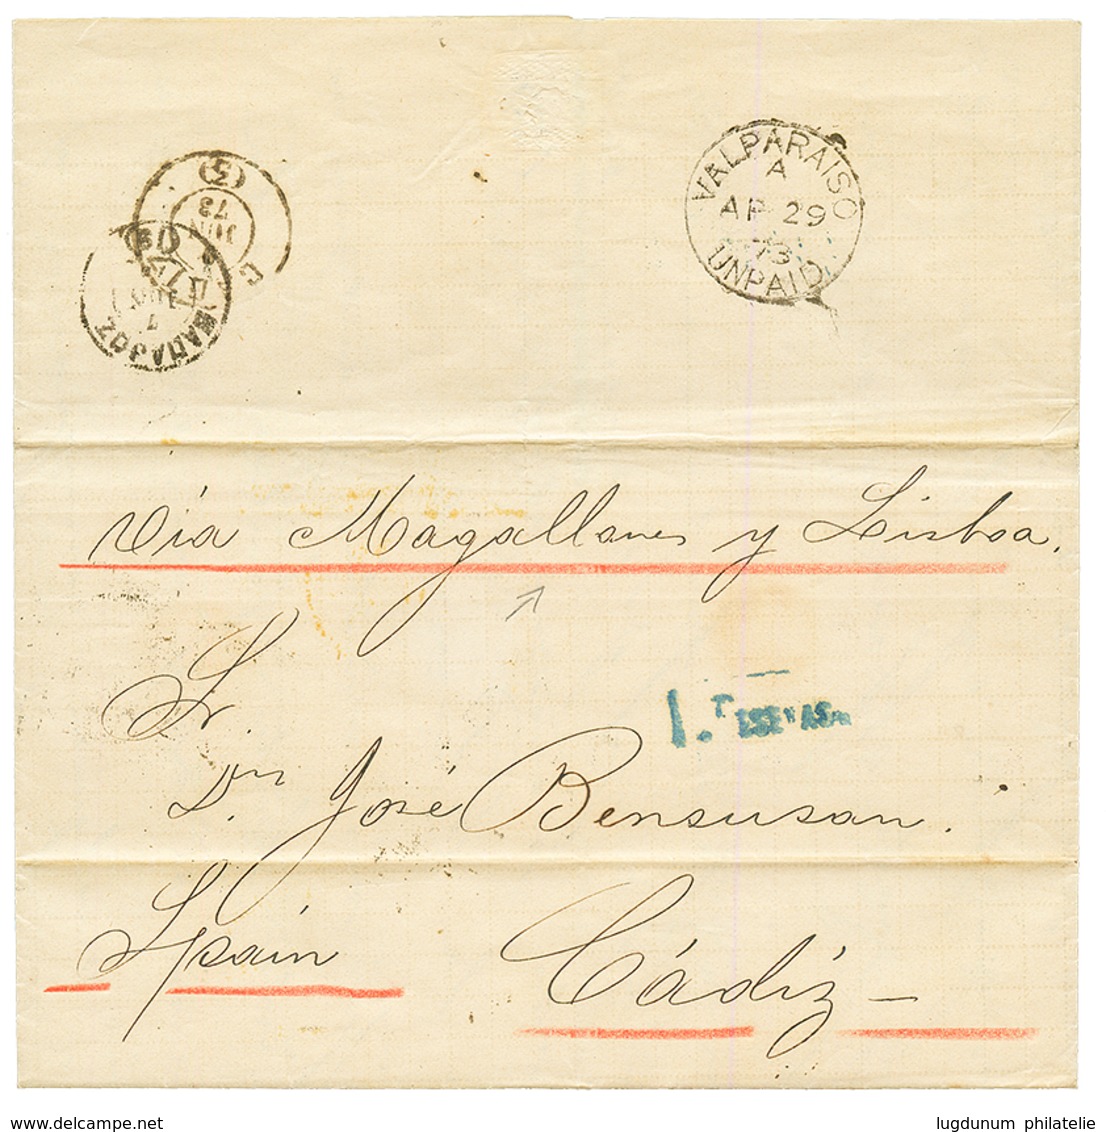 VALPARAISO
A
AP 29
73
UNPAID
(5)
73
JUN
(19)
BADAJOZ
Via Magallanes y Lisboa.
Sr.
1.
Dn. José Bensusan.
Spain Cádiz –
www.delcampe.net
lugdunum philatelie